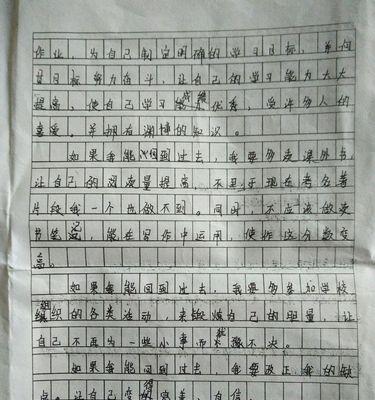 作业，为自己制定明确的学习目标，并向
着目标努力奋斗，让自己的学习能力大大
提高，使自己学习成绩优秀，受许多人的
喜爱。并拥有渊博的知识。
如果我能回到过去，我要多读课外书，
让自己的阅读量提高，不至于现在考名著
片段我一个也做不到。同时，不应该做读
书笔记，能在写作中运用，使作文分数变
高。
如果我能回到过去，我要多参加学校
组织的各类活动，来锻炼自己的胆量，让
自己不再为一些小事而犹豫不决。
如果我能回到过去，我要改正我的缺
点。让自己变得完美，自信。